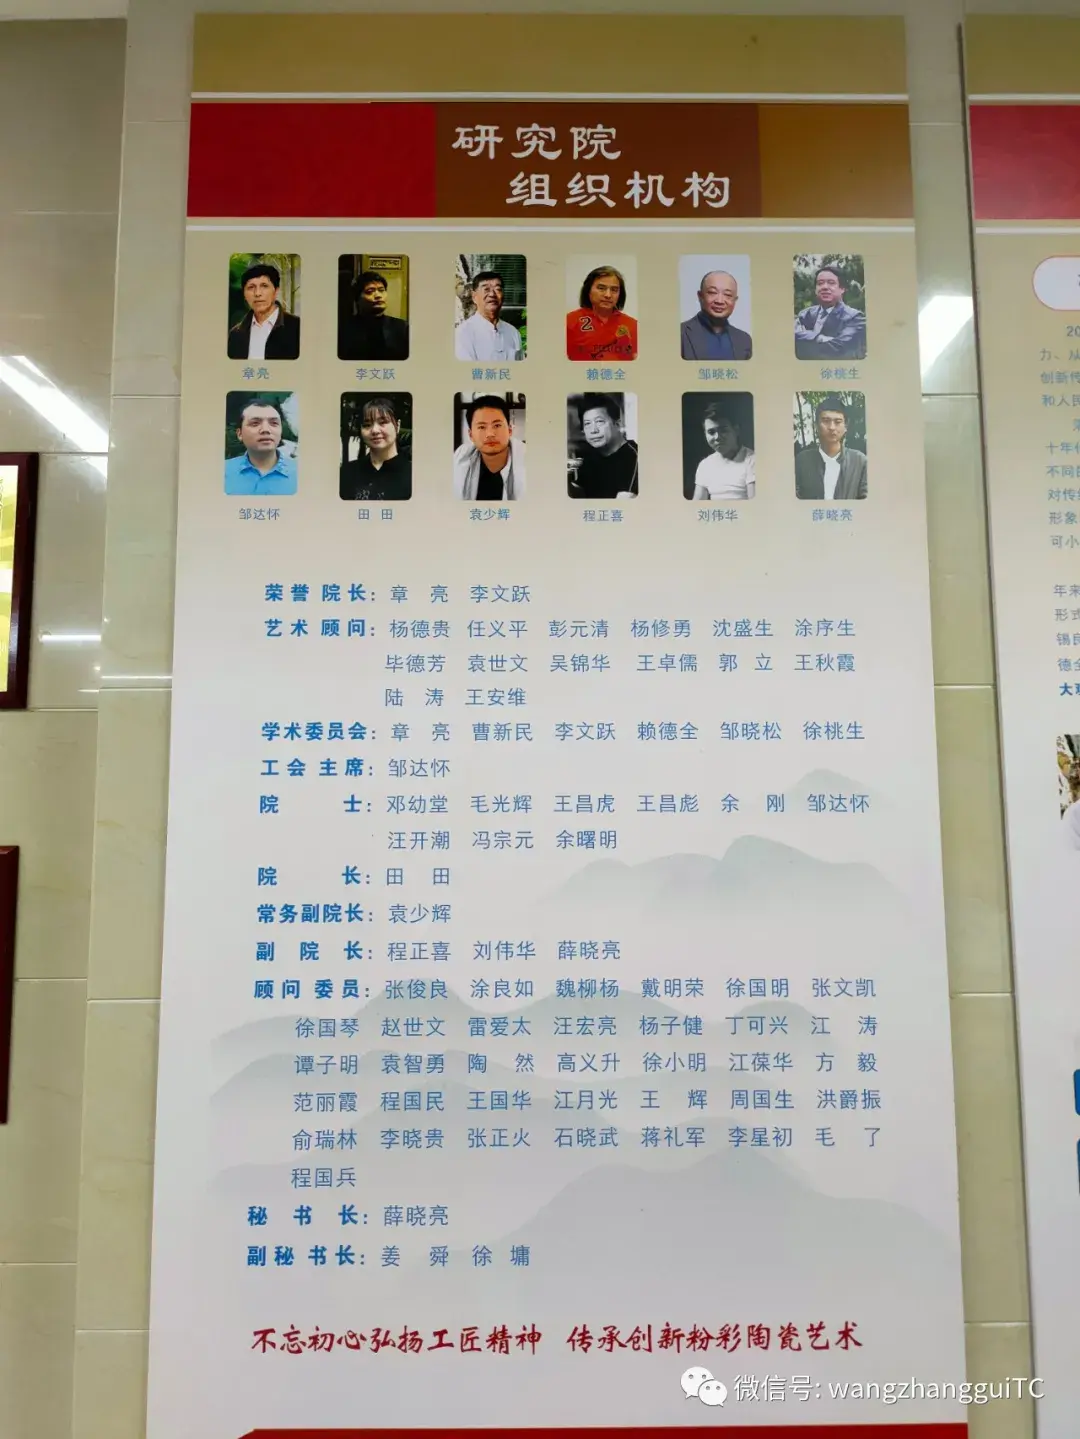 研究院
组织机构
章亮 李文跃 曹新民 赖德全 邹晓松 徐桃生
邹达怀 田 田 袁少辉 程正喜 刘伟华 薛晓亮
荣誉院长：章 亮 李文跃
艺术顾问：杨德贵 任义平 彭元清 杨修勇 沈盛生 涂序生
毕德芳 袁世文 吴锦华 王卓儒 郭 立 王秋霞
陆 涛 王安维
学术委员会：章 亮 曹新民 李文跃 赖德全 邹晓松 徐桃生
工会主席：邹达怀
院 士：邓幼堂 毛光辉 王昌虎 王昌彪 余 刚 邹达怀
汪开潮 冯宗元 余曙明
院 长：田 田
常务副院长：袁少辉
副 院 长：程正喜 刘伟华 薛晓亮
顾问委员：张俊良 涂良如 魏柳杨 戴明荣 徐国明 张文凯
徐国琴 赵世文 雷爱太 汪宏亮 杨子健 丁可兴 江 涛
谭子明 袁智勇 陶 然 高义升 徐小明 江葆华 方 毅
范丽霞 程国民 王国华 江月光 王 辉 周国生 洪爵振
俞瑞林 李晓贵 张正火 石晓武 蒋礼军 李星初 毛 了
程国兵
秘 书 长：薛晓亮
副秘书长：姜 舜 徐 墉
不忘初心弘扬工匠精神 传承创新粉彩陶瓷艺术
微信号: wangzhangguiTC
20
力、从
创新传
和人民
十年代
不同的
对传统
形象
可小
年来
形式
锡良
德全